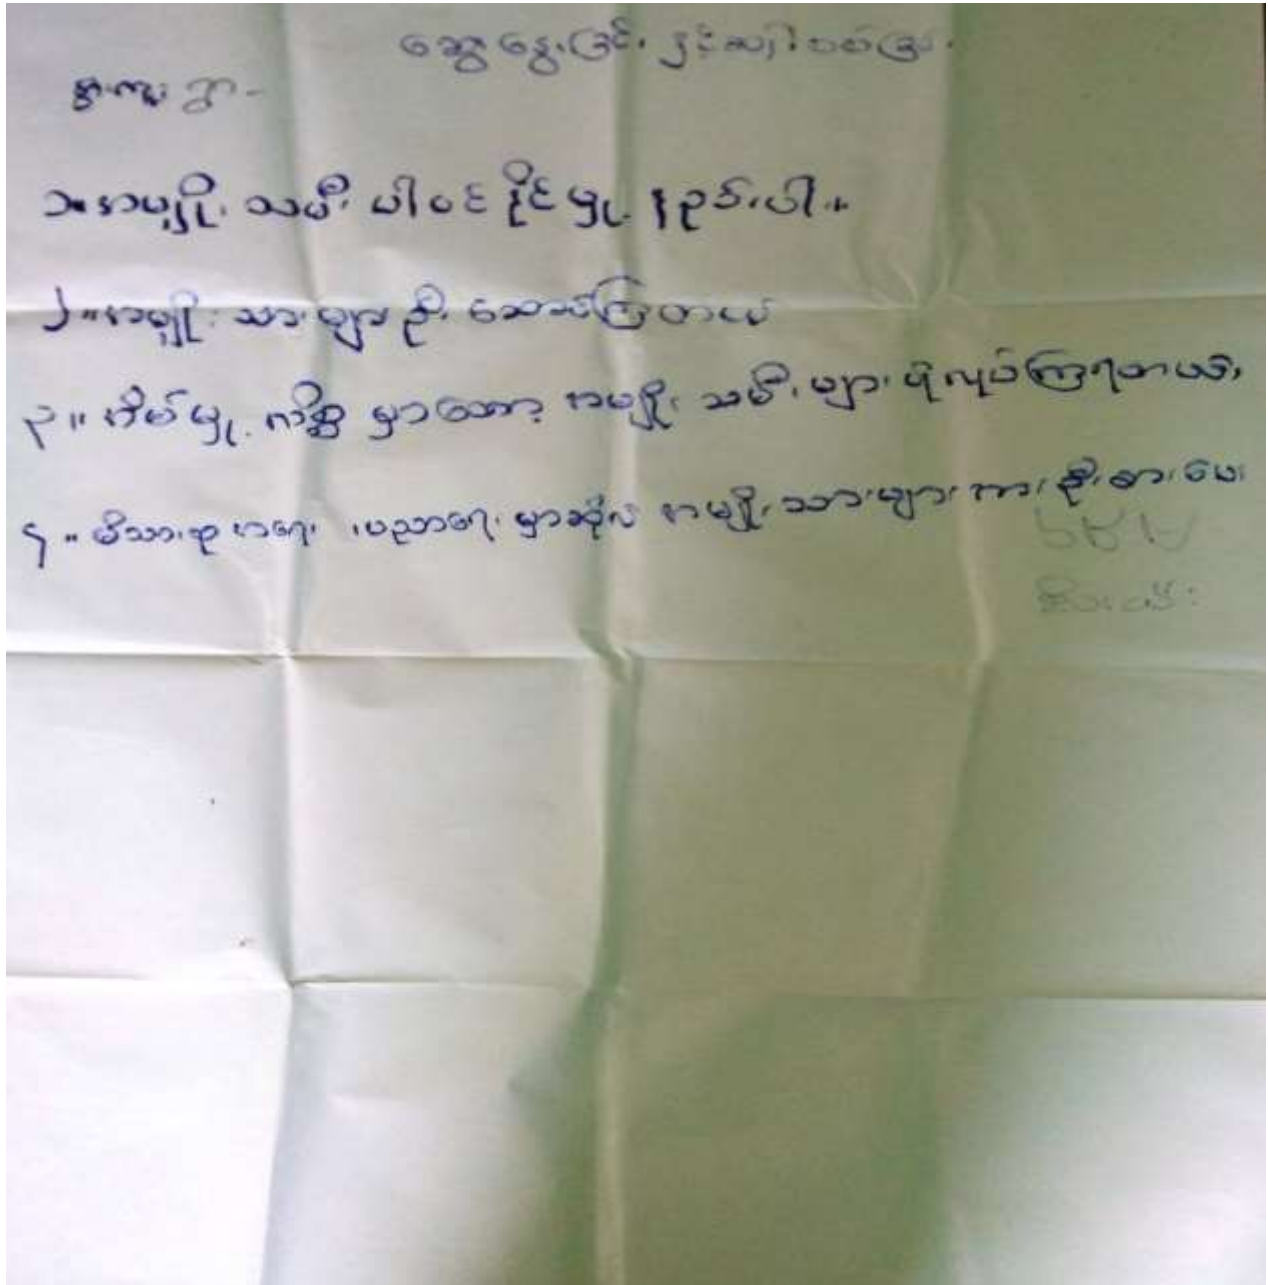 ဆွေးနွေးခြင်း နှင့်
ရွာ-
၁။ အမျိုးသမီး ပါဝင်နိုင်မှု နည်းပါး။
၂။ အမျိုးသားများ ဦးဆောင်ကြတယ်
၃။ အိမ်မှု ကိစ္စ မှာတော့ အမျိုးသမီးများ ပိုလုပ်ကြရတယ်၊
၄။ မိသားစု အရေး၊ ပညာရေး မှာဆိုလဲ အမျိုးသားများကဦးစားပေး